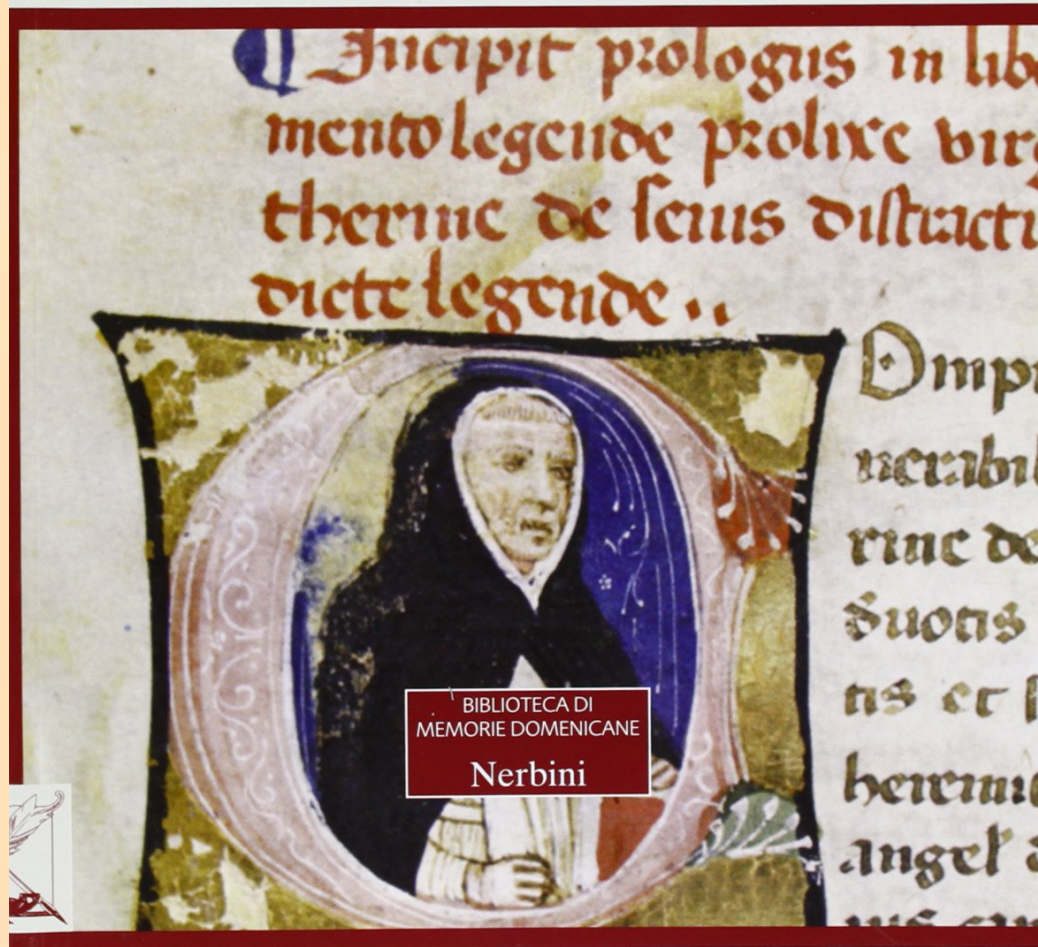 Incipit prologus in libe
mento legende prolixe virg
therine de senis distractu
dicte legende..
Ompu
nerabil
rine de
duotis
tis et
heremi
angel d
BIBLIOTECA DI
MEMORIE DOMENICANE
Nerbini